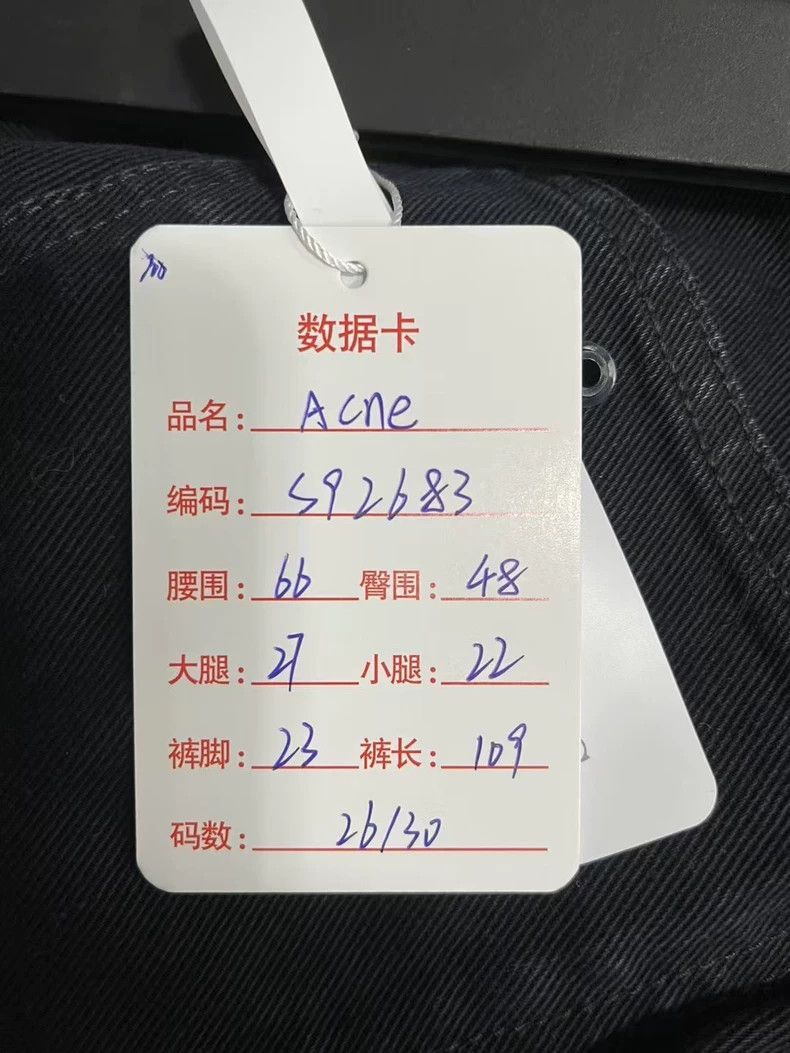 数据卡
品名: Acne
编码: S92683
腰围: 66 臀围: 48
大腿: 27 小腿: 22
裤脚: 23 裤长: 109
码数: 26/30